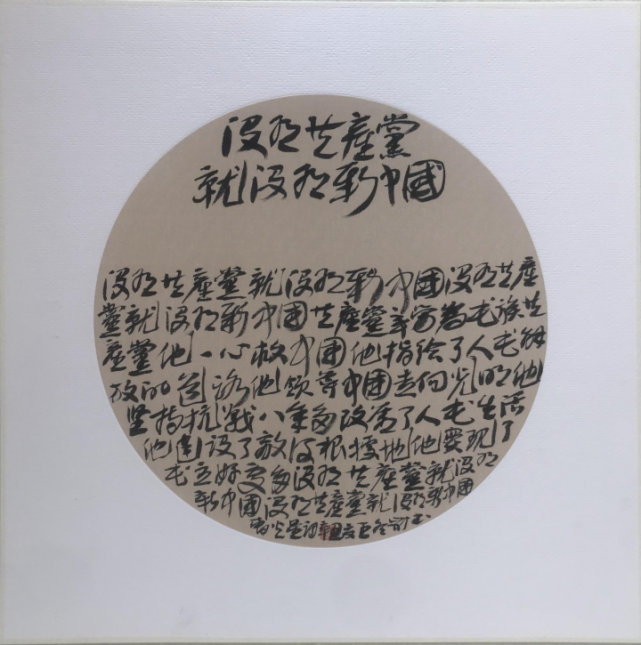 没有共产党
就没有新中國
没有共产黨就没有新中國没有共产
黨就没有新中國共产黨辛劳為民族共
产黨他一心救中國他指给了人民解
放的道路他领导中國走向光明他
坚持抗战八年多改善了人民生活
他建设了敌后根據地他实现了
民主好處多没有共产黨就没有
新中國没有共产黨就没有新中國